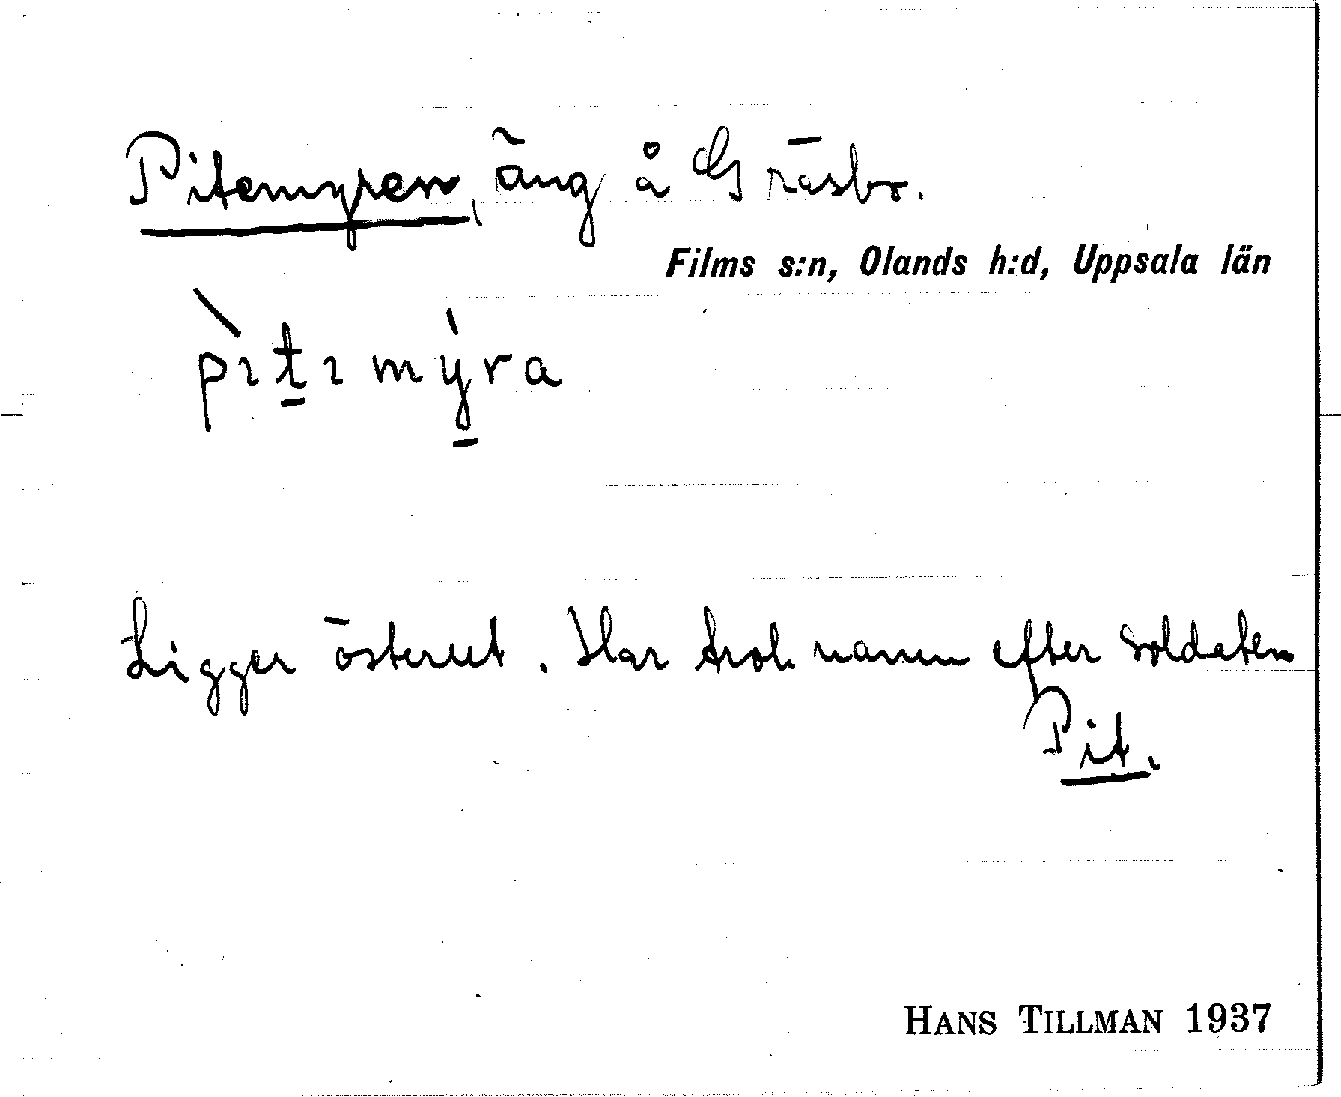 Pitemyren, äng å Gräsbo.
Films s:n, Olands h:d, Uppsala län
pìtɪmýra
Ligger österut. Har trol. namn efter soldaten
Pit.
HANS TILLMAN 1937